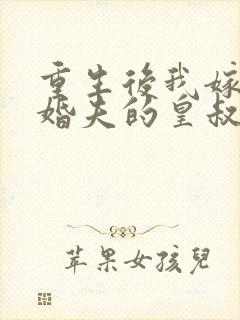 重生後我嫁
婚夫的皇叔
苹果女孩兒